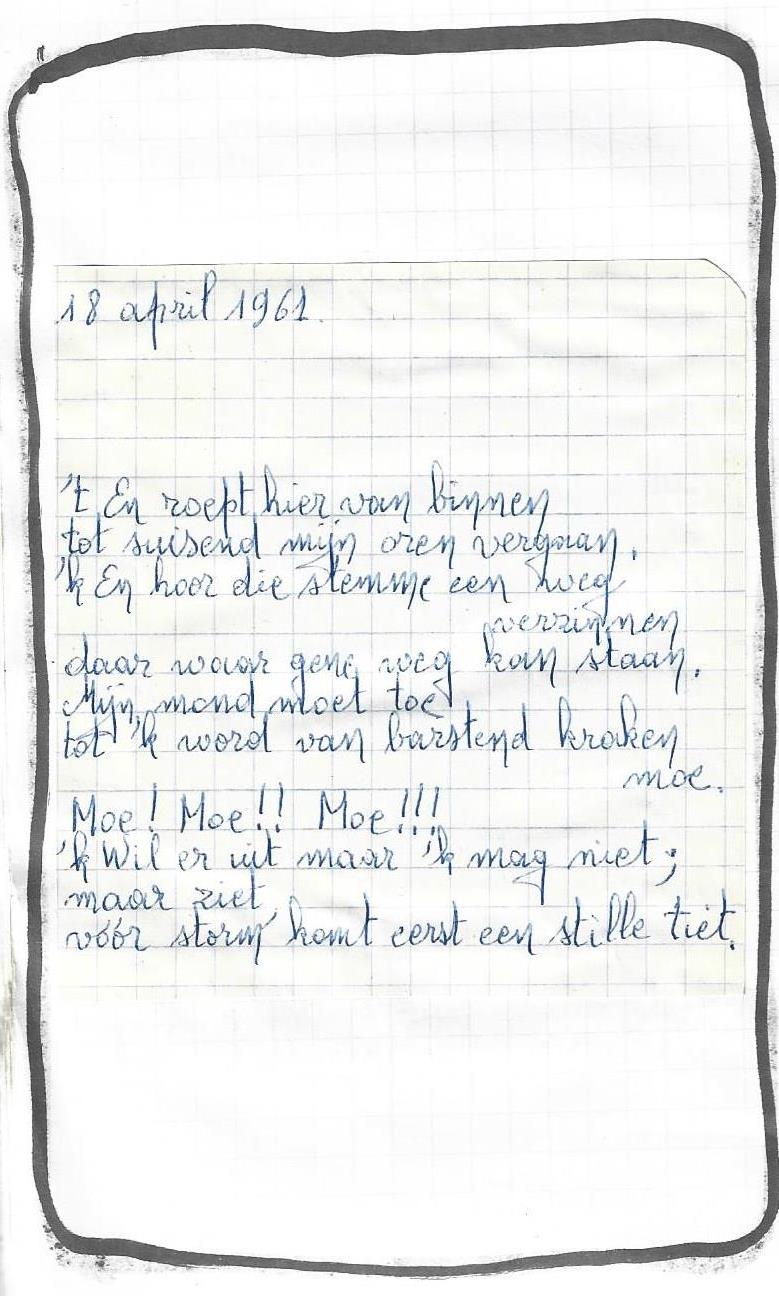 18 april 1961.
't En roept hier van binnen
tot suisend mijn oren vergaan.
'k En hoor die stemme een weg
verzinnen
daar waar gene weg kan staan.
Mijn mond moet toe
tot 'k word van barstend kraken
moe.
Moe! Moe!! Moe!!!
'k Wil er uit maar 'k mag niet;
maar ziet
vóór storm komt eerst een stille tiet.